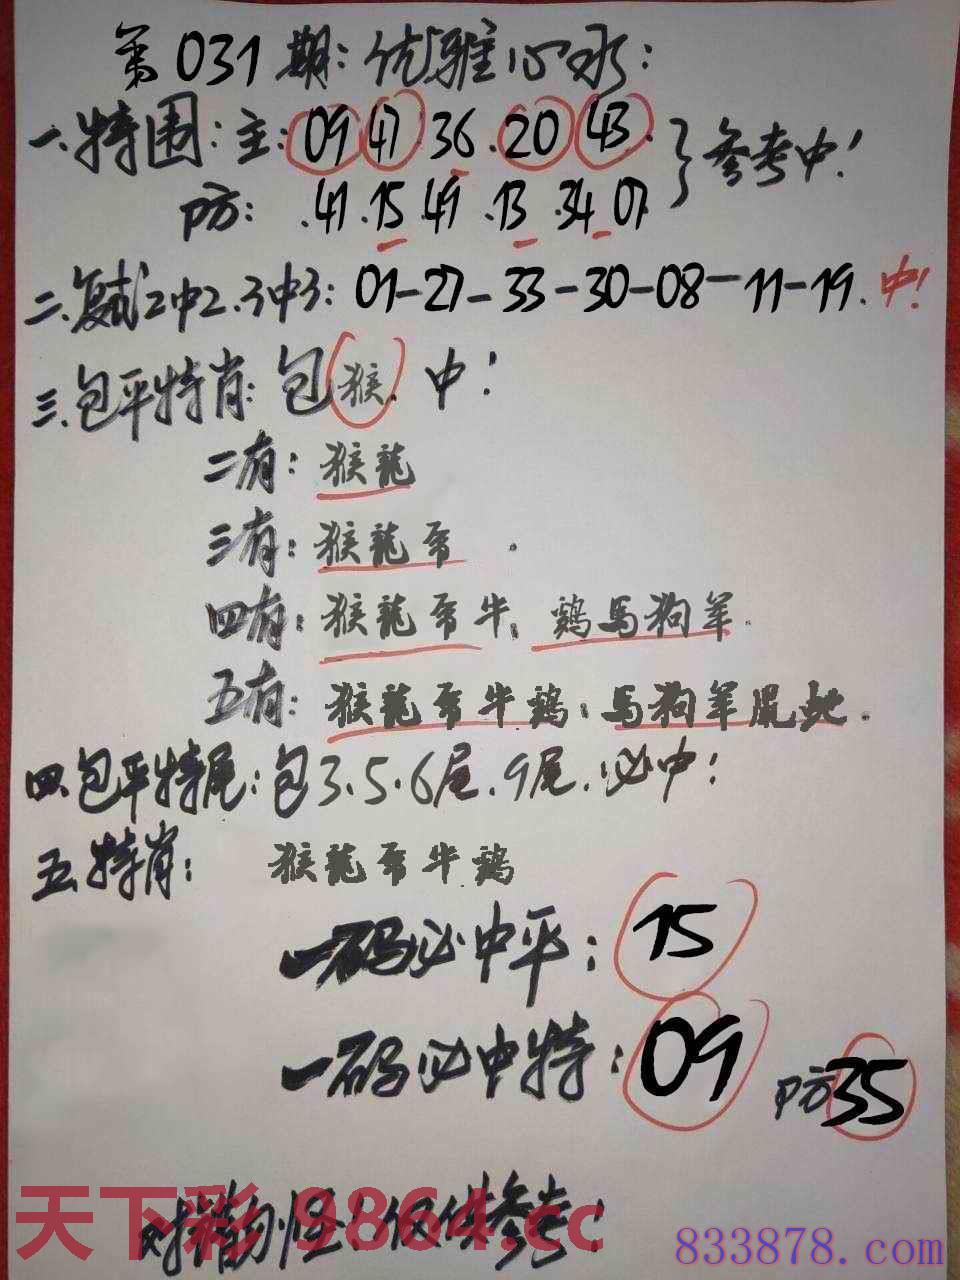 第031期:优雅心水:
一.特围:主:09 47.36.20 43.}参考中!
防: .41.15.49.13.34 07
二.复试2中2.3中3: 01-27-33-30-08-11-19.中!
三.包平特肖:包猴.中!
二有:猴龍
三有:猴龍帝.
四有:猴龍帝牛,鷄馬狗羊.
五有:猴龍帝牛鷄,馬狗羊鼠蛇.
四.包平特尾:包3.5.6尾.9尾.必中!
五.特肖: 猴龍帝牛鷄
一码必中平:15
一码必中特:09 防35
对错勿怪!仅供参考!
天下彩 9864.cc
833878.com